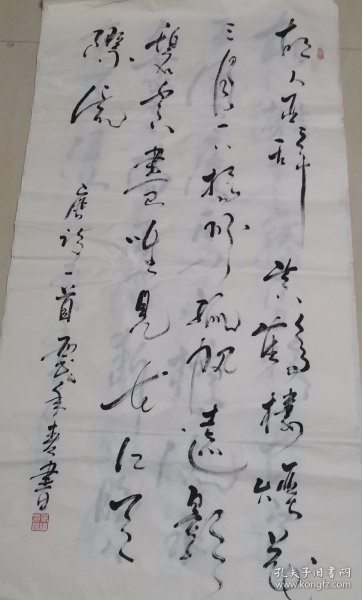 故人西辞黄鹤楼烟花
三月下扬州孤帆远影
碧空尽唯见长江天
际流
唐诗一首 春书
孔夫子旧书网